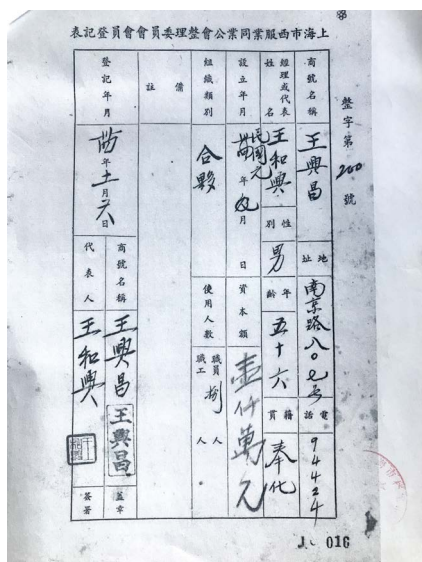 上海市西服業同業公會整理委員會會員登記表
整字第200號
商號名稱 王興昌 地址 南京路八〇七号 電話 94424
經理或代表姓名 王和興 性別 男 年齡 五十六 籍貫 奉化
設立年月 民國元年 月 日 資本額 壹仟萬元
組織類別 合夥 使用人數 職員 捌 人 職工 人
備註
登記年月 年十一月六日 商號名稱 王興昌 王興昌 蓋章
代表人 王和興 簽署
016